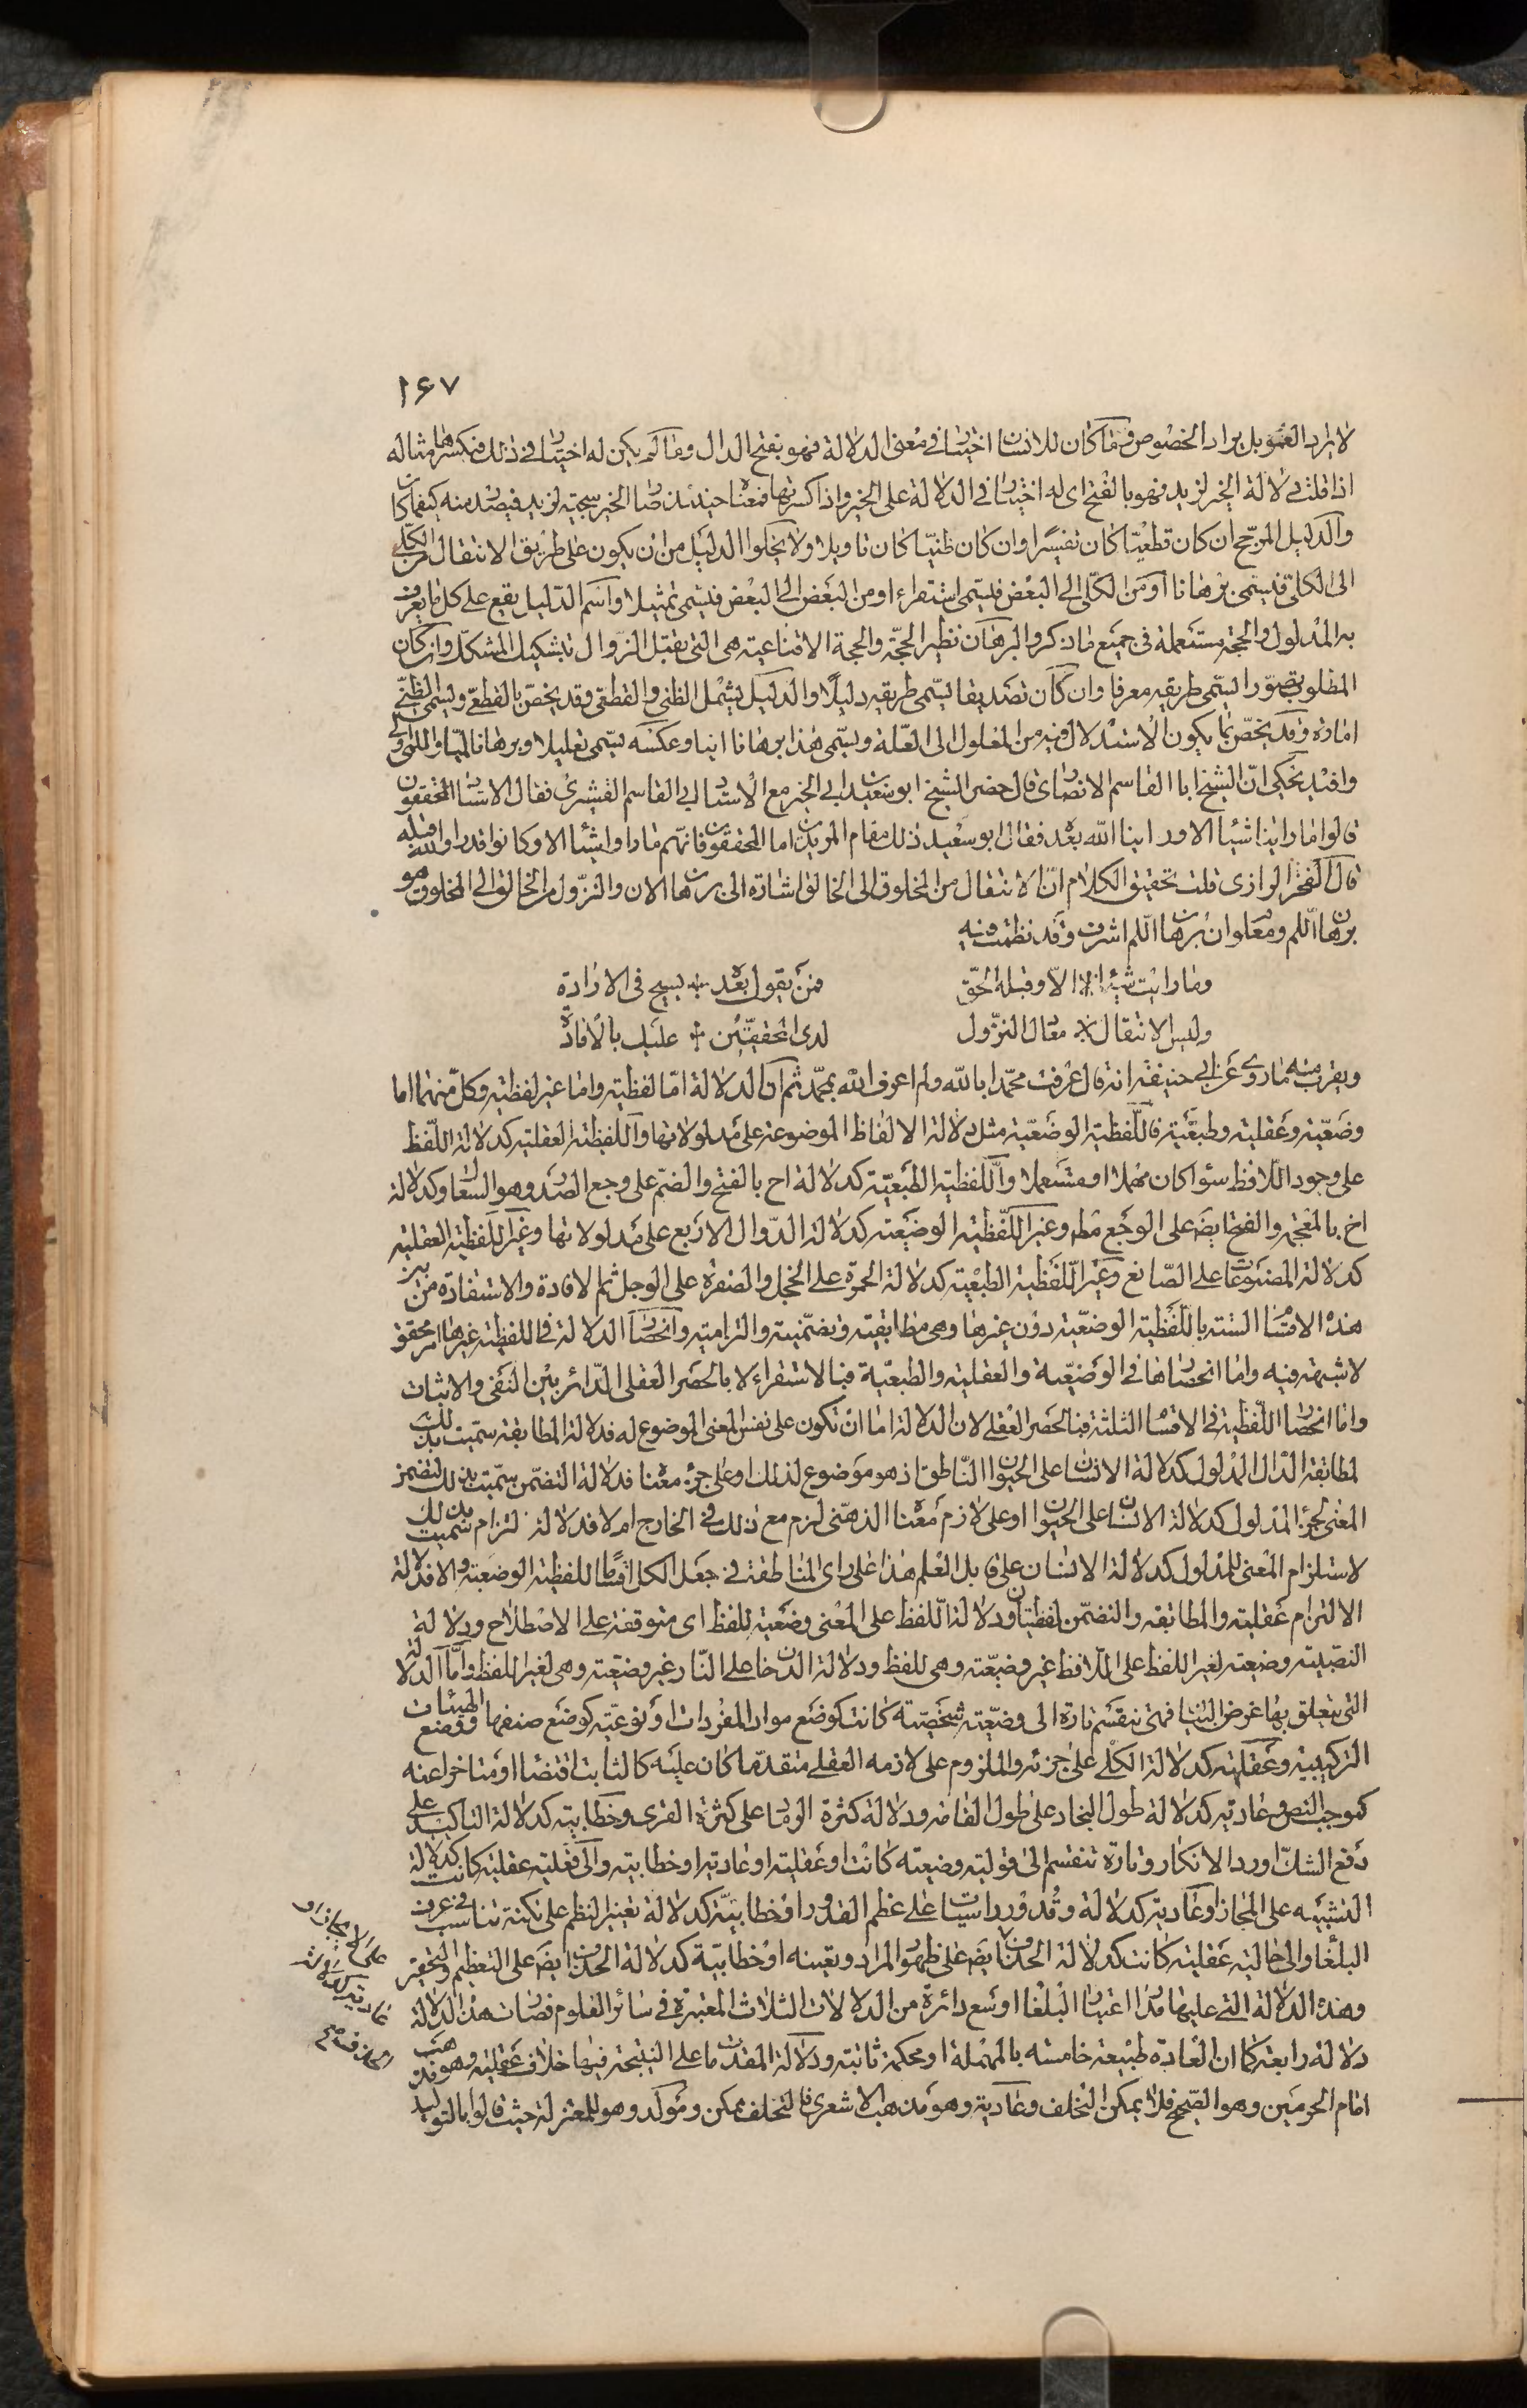 ١٦٧
لا يراد العموم بل يراد الخصوص وما كان للانسان اختيار في معنى الدلالة فهو بفتح الدال وما لم يكن له اختيار في ذلك فبكسرها مثاله
اذا قلت دلالة الخير لزيد فهو بالفتح اى له اختيار في الدلالة على الخير واذا كسرتها فمعناه حينئذ صار الخير سجية لزيد فيصدر منه كيفما كان
والدليل المرجح ان كان قطعيا كان تفسيرا وان كان ظنيا كان تاويلا ولا يخلوا الدليل من ان يكون على طريق الانتقال من الكلى
الى الكلى فيسمى برهانا او من الكلى الى البعض فيسمى استقراء او من البعض الى البعض فيسمى تمثيلا واسم الدليل يقع على كل ما يعرف
به المدلول والحجة مستعملة في جميع ما ذكر والبرهان نظير الحجة والحجة الاقناعية هى التى تقبل الزوال بتشكيك المشكك وان كان
المطلوب تصورا يسمى طريقه معرفا وان كان تصديقا يسمى طريقه دليلا والدليل يشمل الظنى والقطعى وقد يخص بالقطعى ويسمى الظنى
امارة وقد يخص بما يكون الاستدلال فيه من المعلول الى العلة ويسمى هذا برهانا انيا وعكسه يسمى تعليلا وبرهانا لميا واللمى اولى
وافيد يحكى ان الشيخ ابا القاسم الانصارى قال حضر الشيخ ابو سعيد ابى الخير مع الاستاد ابى القاسم القشيرى فقال الاستاد المحققون
قالوا ما راينا شيئا الا وراينا الله بعده فقال ابو سعيد ذلك مقام المريدين اما المحققون فانهم ما راوا شيئا الا وكانوا قد راوا الله قبله
قال الفخر الرازى قلت تحقيق الكلام ان الانتقال من المخلوق الى الخالق اشارة الى برهان الان والنزول من الخالق الى المخلوق هو
برهان اللم ومعلوم ان برهان اللم اشرف وقد نظمت فيه
وما رايت شيئا الا وقبله الحق فمن يقول بعده يسيح في الارادة
وليس الانتقال مقال النزول لدى المحققين عليك بالافادة
ويقرب منه ما روى عن ابى حنيفة انه قال عرفت محمدا بالله ولم اعرف الله بمحمد ثم ان الدلالة اما لفظية واما غير لفظية وكل منهما اما
وضعية وعقلية وطبعية فاللفظية الوضعية مثل دلالة الالفاظ الموضوعة على مدلولاتها واللفظية العقلية كدلالة اللفظ
على وجود اللافظ سواء كان مهملا او مستعملا واللفظية الطبعية كدلالة اح بالفتح والضم على وجع الصدر وهو السعال وكدلالة
اخ بالمعجمة والفتح ايض على الوجع مط وغير اللفظية الوضعية كدلالة الدوال الاربع على مدلولاتها وغير اللفظية العقلية
كدلالة المصنوعات على الصانع وغير اللفظية الطبعية كدلالة الحمرة على الخجل والصفرة على الوجل ثم الافادة والاستفادة من بين
هذه الاقسام الستة باللفظية الوضعية دون غيرها وهى مطابقية وتضمنية والتزامية وانحصار الدلالة في اللفظية وغيرها امر محقق
لا شبهة فيه واما انحصارها في الوضعية والعقلية والطبعية فبالاستقراء لا بالحصر العقلى الدائر بين النفى والاثبات
واما انحصار اللفظية في الاقسام الثلثة فبالحصر العقلى لان الدلالة اما ان تكون على نفس المعنى الموضوع له فدلالة المطابقة سميت بذلك
لمطابقة الدال المدلول كدلالة الانسان على الحيوان الناطق اذ هو موضوع لذلك او على جزء معناه فدلالة التضمن سميت بذلك لتضمن
المعنى لجزء المدلول كدلالة الانسان على الحيوان او على لازم معناه الذهنى لزم مع ذلك في الخارج ام لا فدلالة لتزام سميت بذلك
لاستلزام المعنى للمدلول كدلالة الانسان على قابل العلم هذا على راى المناطقة في جعل الكل اقساما للفظية الوضعية والا فدلالة
الالتزام عقلية والمطابقة والتضمن لفظيتان ودلالة اللفظ على المعنى وضعية للفظ اى متوقفة على الاصطلاح ودلالة
النصبية وضعية لغير اللفظ على اللافظ غير وضعية وهى للفظ ودلالة الدخان على النار غير وضعية وهى لغير اللفظ واما الدلالة
التى يتعلق بها غرض البيان فهى تنقسم تارة الى وضعية شخصية كانت كوضع مواد المفردات او نوعية كوضع صنفها ووضع الهيئات
التركيبية وعقلية كدلالة الكلى على جزئه والملزوم على لازمه العقلى متقدما كان عليه كالثابت اقتضاء او متاخرا عنه
كموجب النص وعادية كدلالة طول النجاد على طول القامة ودلالة كثرة الرماد على كثرة القرى وخطابية كدلالة التاكيد على
دفع الشك او رد الانكار وتارة تنقسم الى قولية وضعية كانت او عقلية او عادية او خطابية والى فعلية عقلية كانت كدلالة
التشبيه على المجاز او عادية كدلالة وقدور راسيات على عظم القدور او خطابية كدلالة تغيير النظم على نكتة تناسب في عرف
البلغاء والى حالية عقلية كانت كدلالة الحذف ايض على ظهور المراد وتعينه او خطابية كدلالة الحذف ايض على التعظيم والتحقير
وهذه الدلالة التى عليها مدار اعتبار البلغاء اوسع دائرة من الدلالات الثلاث المعتبرة في سائر العلوم فصارت هذه الدلالة
دلالة رابعة كما ان العادة طبيعة خامسة بالمهملة او محكمة ثابتة ودلالة المقدمات على النتيجة فيها خلاف عقلية وهو مذهب
امام الحرمين وهو الصحيح فلا يمكن التخلف وعادية وهو مذهب الاشعرى فالتخلف ممكن ومولد وهو للمعتزلة حيث قالوا بالتوليد